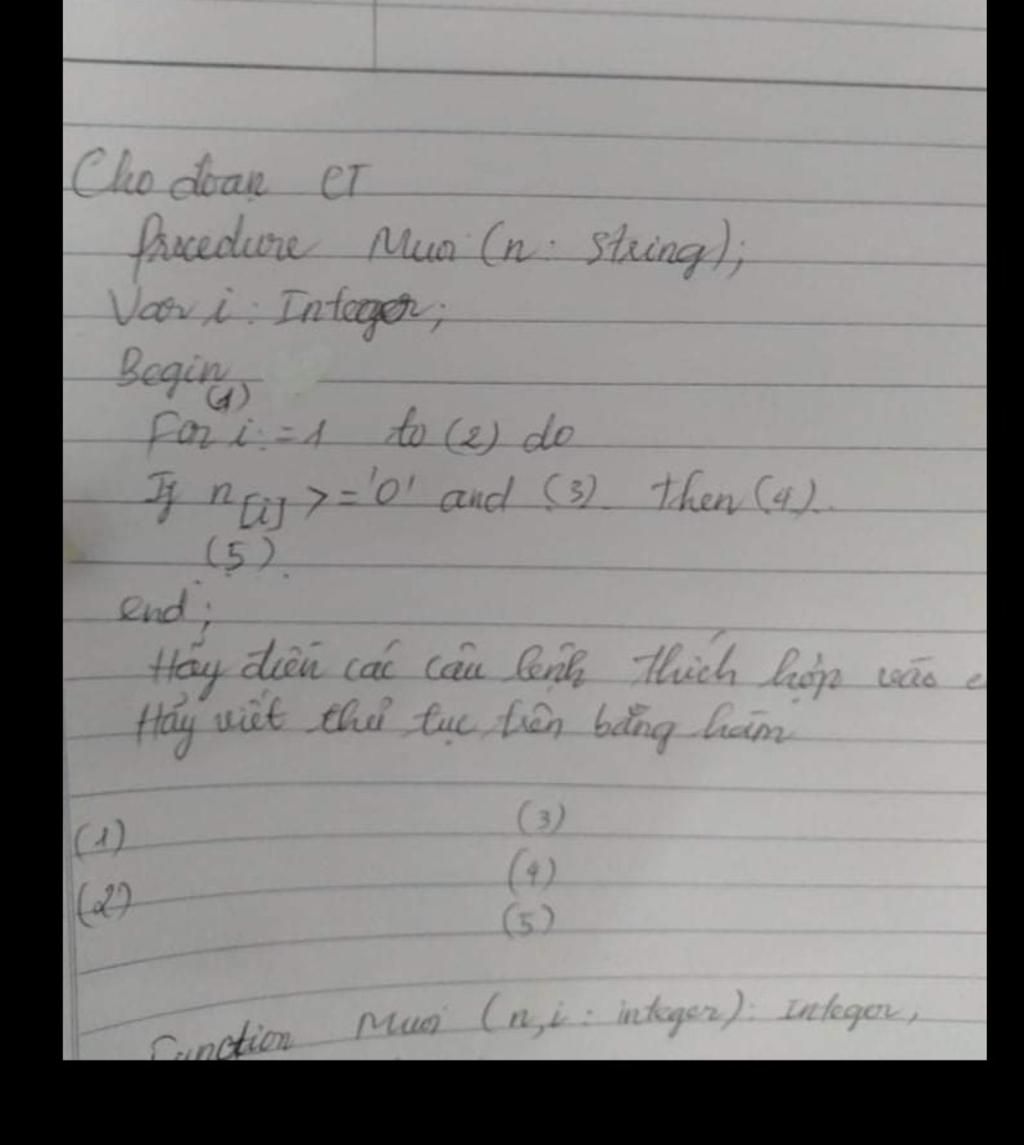 Cho đoạn CT
Procedure Muoi (n: string);
Var i: Integer;
Begin
(1)
For i:=1 to (2) do
If n[i] >= '0' and (3) then (4).
(5).
end;
Hãy điền các câu lệnh thích hợp vào
Hãy viết thủ tục trên bằng hàm
(1) (3)
(2) (4)
(5)
Function Muoi (n,i: integer): Integer,